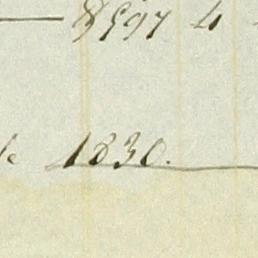 8597 4
1830.